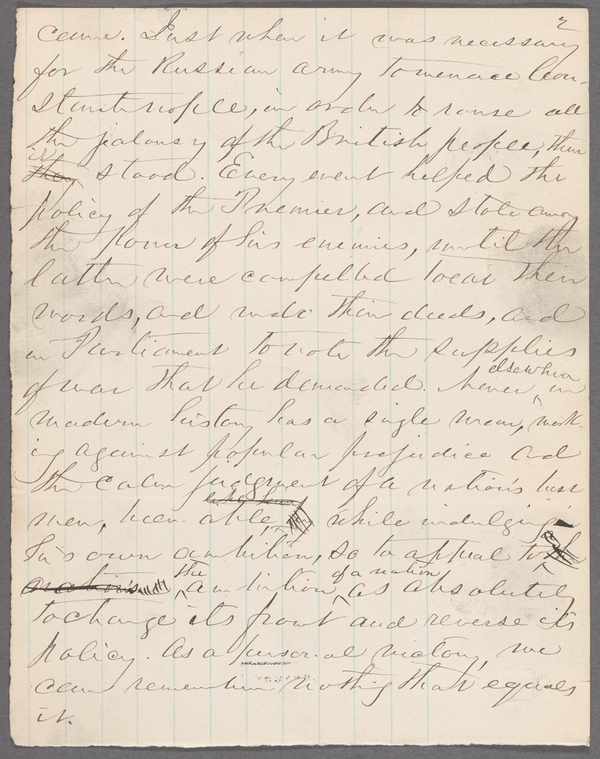 2
came. Just when it was necessary
for the Russian army to menace Con-
stantinople, in order to rouse all
the jealousy of the British people, there
it
they stood. Every event helped the
policy of the Premier, and stole away
the power of his enemies, until the
latter were compelled to eat their
words, and undo their deeds, and
in Parliament to vote the supplies
elsewhere
of war that he demanded. Never in
modern history has a single man, work-
ing against popular prejudice and
the calm judgment of a nation's best
men, been able, while indulging
his own ambition, so to appeal to
the of a nation
ambition as absolutely
to change its front and reverse its
policy. As a personal victory, we
can remember nothing that equals
it.